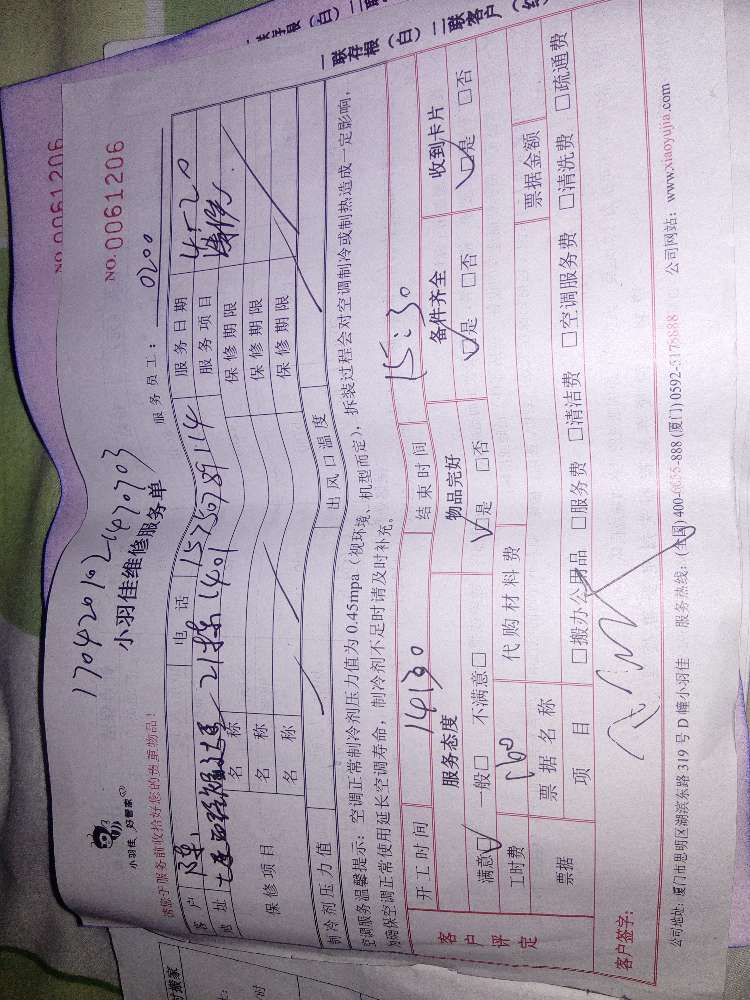 一联存根（白）二联
一联存根（白）二联客户（
NO. 0061206
NO. 0061206
1704201021470703
小羽佳 好管家
小羽佳维修服务单
服务员工： 0200
请您于服务前收拾好您的贵重物品！
客户 陈 电话 15750789114 服务日期 4.20
地址 21栋1401 服务项目
保修项目 名称 保修期限
名称 保修期限
名称 保修期限
制冷剂压力值 出风口温度
空调服务温馨提示：空调正常制冷剂压力值为 0.45mpa（视环境、机型而定），拆装过程会对空调制冷或制热造成一定影响，
为确保空调正常使用延长空调寿命，制冷剂不足时请及时补充。
开工时间 14:30 结束时间 15:30
客户评定 服务态度 物品完好 备件齐全 收到卡片
满意□ 一般□ 不满意□ □是 □否 □是 □否 □是 □否
工时费 160 代购材料费
票据 票据名称 票据金额
项目 □搬办公用品 □服务费 □清洁费 □空调服务费 □清洗费 □疏通费
客户签字：
公司地址：厦门市思明区湖滨东路 319 号 D 幢小羽佳 服务热线：(全国) 400-6655-888 (厦门) 0592-5178888 公司网站：www.xiaoyujia.com
时搬家